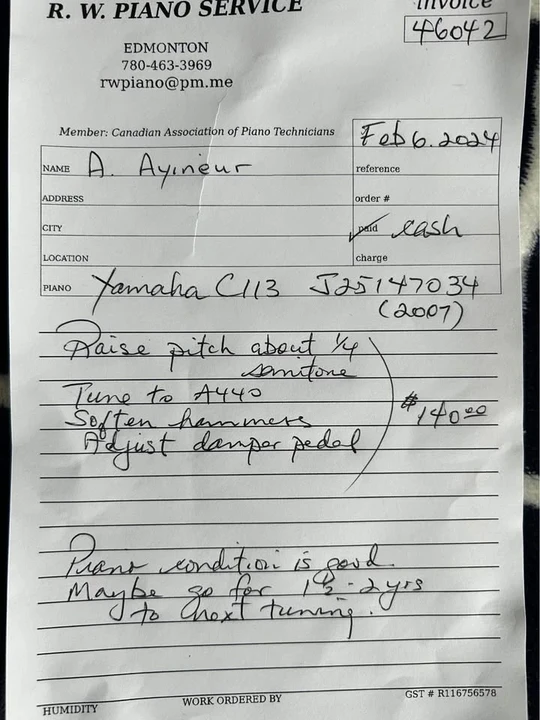 R. W. PIANO SERVICE
Invoice
46042
EDMONTON
780-463-3969
rwpiano@pm.me
Member: Canadian Association of Piano Technicians
Feb 6. 2024
NAME A. Ayineur
reference
ADDRESS
order #
CITY
paid cash
LOCATION
charge
PIANO Yamaha C113 J25147034
(2007)
Raise pitch about 1/4
semitone
Tune to A440
Soften hammers
Adjust damper pedal
$140.00
Piano condition is good.
Maybe go for 1½-2 yrs
to next tuning.
HUMIDITY
WORK ORDERED BY
GST # R116756578